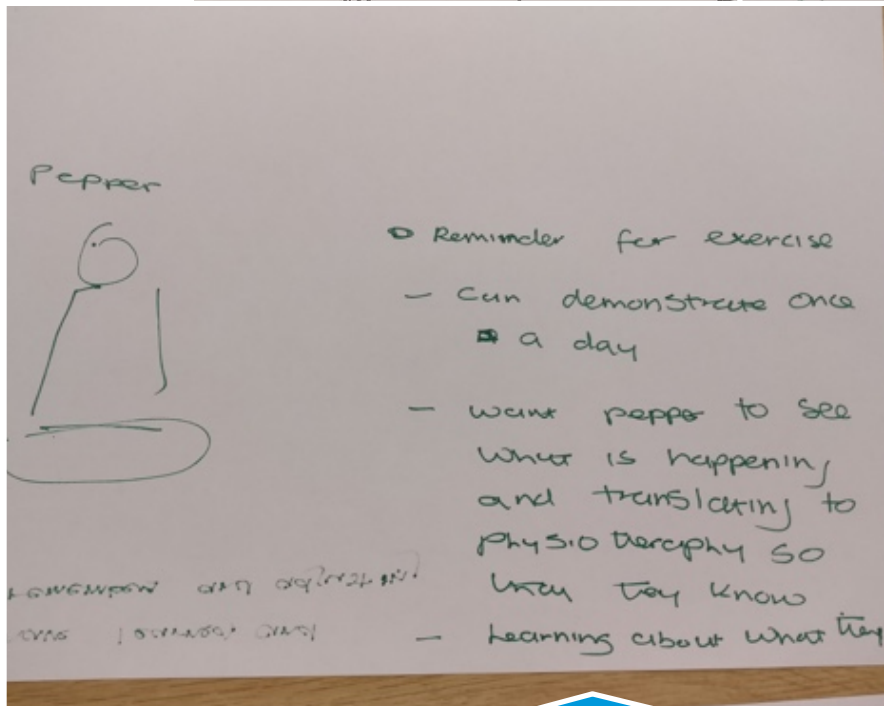 Pepper
Reminder for exercise
– Can demonstrate once
a day
– want pepper to see
what is happening
and translating to
physiotheraphy so
they know
– Learning about what they